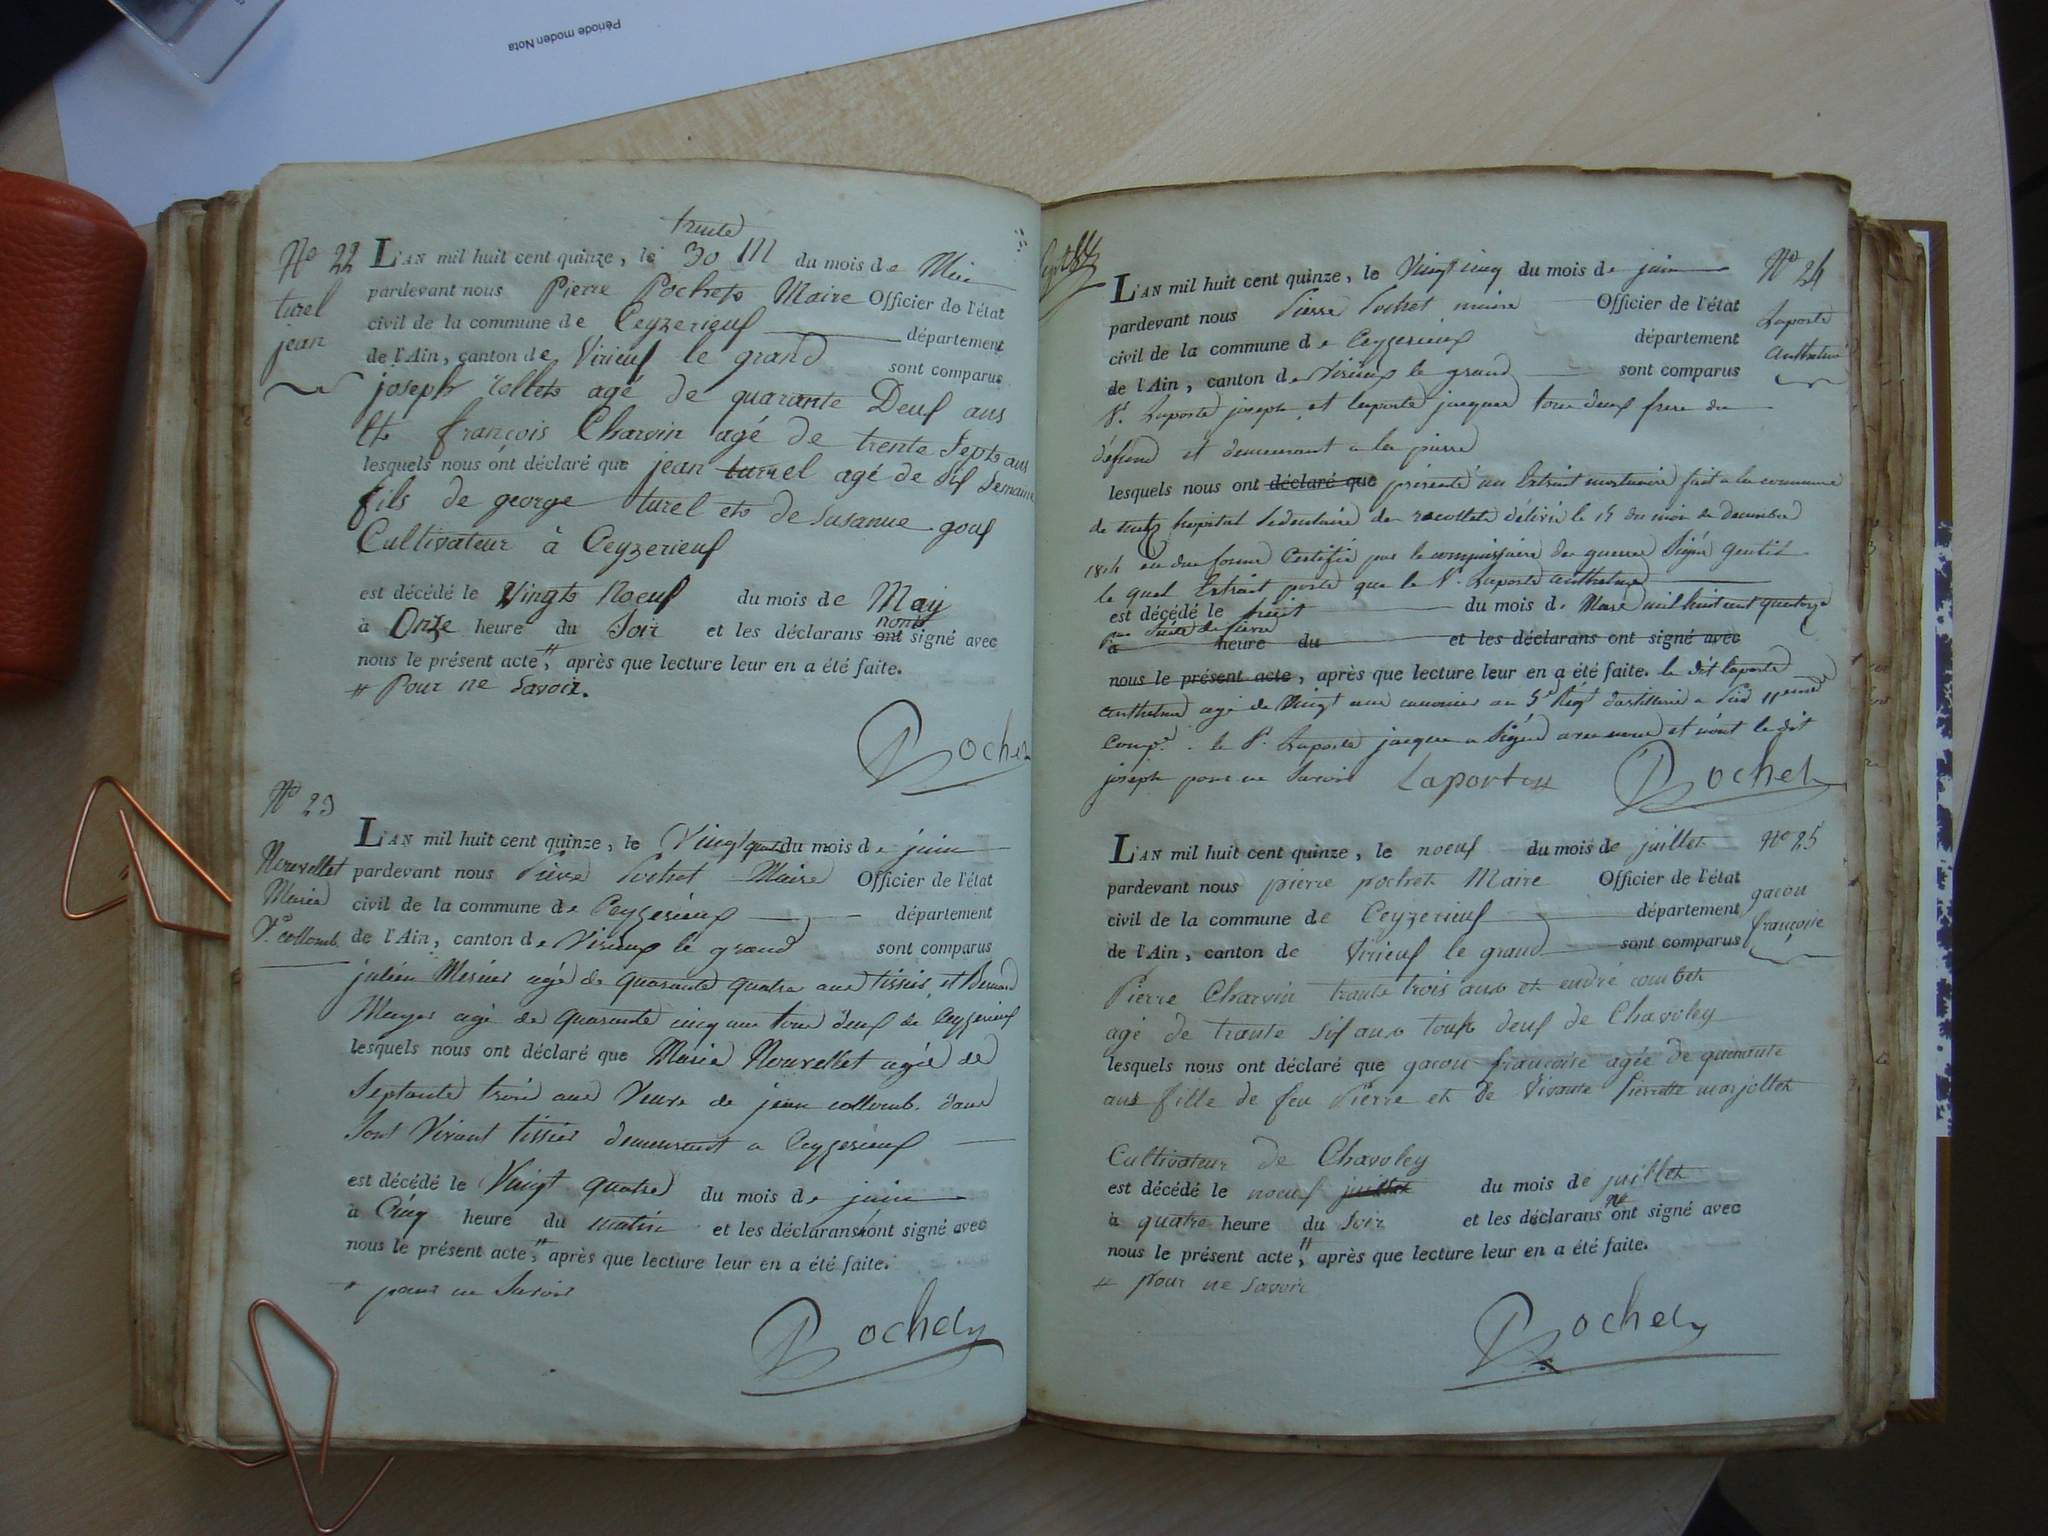 Période moden Nota
trente
No 22
turel
jean
L'AN mil huit cent quinze, le 30 du mois de Mai
pardevant nous Pierre Pochet Maire Officier de l'état
civil de la commune de Ceyzerieux département
de l'Ain, canton de Virieux le grand sont comparus
joseph agé de quarante Deux ans
et françois Charvin agé de trente Sept ans
lesquels nous ont déclaré que jean turrel agé de Six Semaine
fils de george turel et de Susanne goux
Cultivateur à Ceyzerieux
est décédé le Vingt Noeuf du mois de May
à Onze heure du Soir et les déclarans ont nont signé avec
nous le présent acte, # après que lecture leur en a été faite.
# Pour ne Savoir.
Pochet
No 23
Nouvellet
Marie
Ve collomb.
L'AN mil huit cent quinze, le Vingt quatre du mois de juin
pardevant nous Pierre Pochet Maire Officier de l'état
civil de la commune de Ceyzerieux département
de l'Ain, canton de Virieux le grand sont comparus
julien Mesnier agé de quarante quatre ans tissier, et Bernard
Mayer agé de quarante cinq ans tous deux de Ceyzerieux
lesquels nous ont déclaré que Marie Nouvellet agée de
Septante trois ans Veuve de jean collomb. dans
Son Vivant tissier demeurant a Ceyzerieux
est décédé le Vingt quatre du mois de juin
à Cinq heure du matin et les déclarans n'ont signé avec
nous le présent acte, # après que lecture leur en a été faite.
# pour ne Savoir
Pochet
No 24
Laporte
Anthelme
L'AN mil huit cent quinze, le Vingt cinq du mois de juin
pardevant nous Pierre Pochet maire Officier de l'état
civil de la commune de Ceyzerieux département
de l'Ain, canton de Virieux le grand sont comparus
Sr. Laporte joseph, et laporte jacques tous deux frere du
défund et demeurant a la pierre
lesquels nous ont déclaré que présenté un Extrait mortuaire fait a la commune
de metz hopital Sedentaire des recollets délivré le 15 du mois de decembre
1814 en due forme Certifié par le commissaire des guerres Signé gentil
le quel Extrait porte que le Sr. Laporte anthelme
est décédé le huit du mois de Mars mil huit cent quatorze
par Suite de fievre
à heure du et les déclarans ont signé avec
nous le présent acte, après que lecture leur en a été faite. le dit laporte
anthelme agé de Vingt ans canonier au 5e Regt d'artillerie a Pied 11eme
Compe. le Sr. Laporte jacques a Signé avec nous et non le dit
joseph pour ne Savoir Laporte Pochet
No 25
gacon
françoise
L'AN mil huit cent quinze, le noeuf du mois de juillet
pardevant nous pierre pochet Maire Officier de l'état
civil de la commune de Ceyzerieux département
de l'Ain, canton de Virieux le grand sont comparus
Pierre Charvin trante trois ans et endré combet
agé de trante six ans tout deux de Chavoley
lesquels nous ont déclaré que gacon françoise agée de quarante
ans fille de feu Pierre et de Vivante Pierrette marjollet
Cultivateur de Chavoley
est décédé le noeuf juillet du mois de juillet
à quatre heure du Soir et les déclarans ne ont signé avec
nous le présent acte, # après que lecture leur en a été faite.
# pour ne Savoir
Pochet